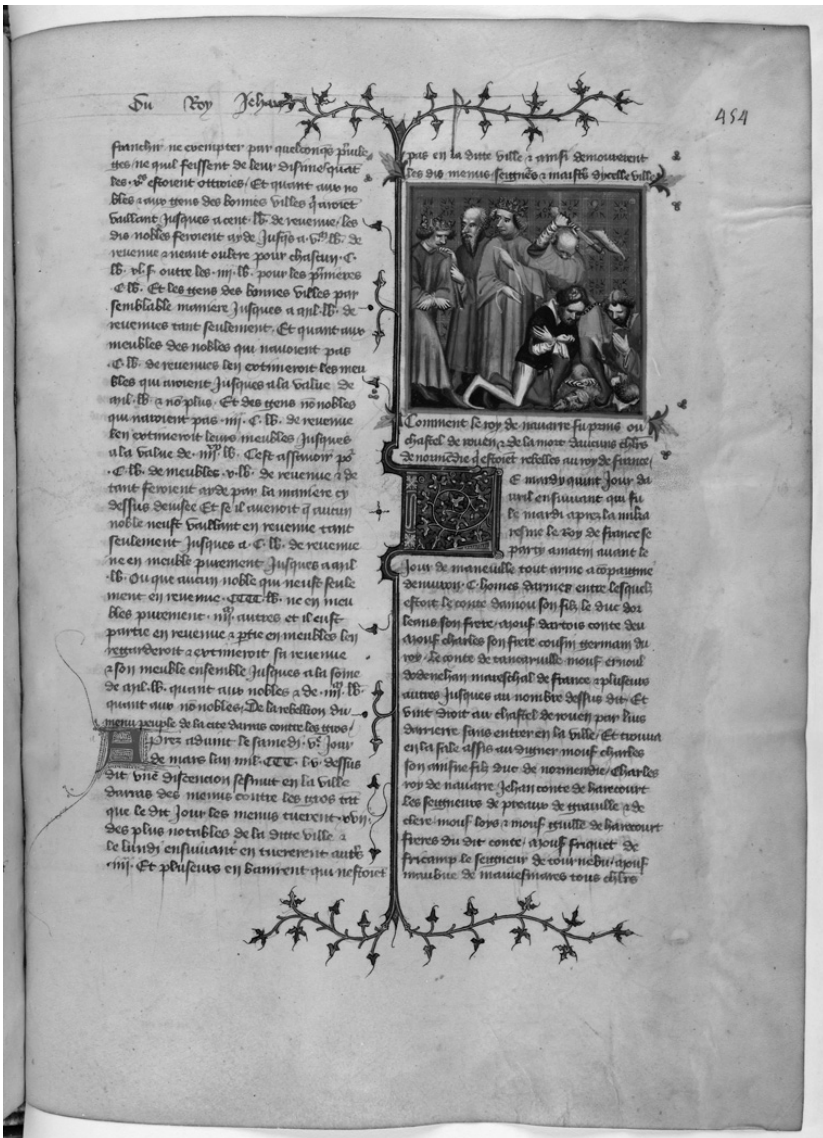 Du Roy Jehan
454
franchir ne exempter par quelconqs p̃uile
ges / ne quil feissent de leur disme / quat
les .xes estoient ottroies / Et quant aux no
bles ⁊ aux gens des bonnes villes q̃ avoiēt
vaillant jusques a cent .lb̃. de revenue / les
dis nobles feroient ayde jusq̃s a .v.m .lb̃. de
revenue ⁊ neant oultre pour chascun .C.
lb̃. .xl. f. outre les .iiij. lb̃. pour les p̃mieres
.C. lb̃. Et les gens des bonnes villes par
semblable maniere jusques a mil .lb̃. de
revenues tant seulement . Et quant aux
meubles des nobles qui navoient pas
.C. lb̃. de revenues len extimeroit les meu
bles qui avoient jusques a la value de
mil .lb̃. ⁊ nō plus . Et des gens nō nobles
qui navoient pas .iiij. C. lb̃. de revenue
len extimeroit leurs meubles jusques
a la value de .iiij.m lb̃. Cest assavoir pō
.C. lb̃. de meubles .x. lb̃. de revenue ⁊ de
tant feroient ayde par la maniere cy
dessus devisee Et se il avenoit q̃ aucun
noble neust vaillant en revenue tant
seulement jusques a .C. lb̃. de revenue
ne en meuble purement jusques a mil
.lb̃. Ou que aucun noble qui neust seule
ment en revenue .CCCC. lb̃. ne en meu
bles purement .iiij.m autres et il eust
partie en revenue ⁊ p̃tie en meubles len
regarderoit ⁊ extimeroit sa revenue
⁊ son meuble ensemble jusques a la sōme
de mil .lb̃. quant aux nobles ⁊ de .iiij.m lb̃
quant aux nō nobles / De la rebellion du
menu peuple de la cite darras contre les gros /
Aprez advint le samedi .v.e jour
de mars lan mil .CCC. l.v. dessus
dit vne discencion sesmut en la ville
darras des menus contre les gros tāt
que le dit jour les menus tuerent .xvij.
des plus notables de la ditte ville ⁊
le lundi ensuivant en tuererent autr̃s
.iiij. Et pluseurs en banirent qui nestoiēt
pas en la ditte ville ⁊ ainsi demourerent
les dis menus seignr̃s ⁊ maistr̃s dycelle ville
Comment le roy de navarre fu prins ou
chastel de rouen / ⁊ de la mort daucuns chl̃rs
de normēdie q̃ estoiēt rebelles au roy de france /
LE mardy quint jour da
uril ensuivant qui fu
le mardi aprez la mika
resme le Roy de france se
party a matin avant le
jour de maneville tout arme acōpaigne
denuiron .C. hōmes darmes entre lesquelz
estoit le conte daniou son filz le duc dor
leans son frere / mōss̃ jehan dartois conte deu
mōss̃ charles son frere cousin germain du
roy . le conte de tancarville mōss̃ ernoul
dodenehan mareschal de france ⁊ pluseurs
autres jusques au nombre dessus dit . Et
vint droit au chastel de rouen par luis
darriere sans entrer en la ville / Et trouva
en la sale assis au digner mōss̃ charles
son ainsne filz duc de normendie / Charles
roy de navarre Jehan conte de harecourt
les seigneurs de preaux de graville ⁊ de
clere mōss̃ loys ⁊ mōss̃ guill̃e de harecourt
freres du dit conte / mōss̃ friquet de
fricamp le seigneur de tournebu / mōss̃
maubue de mainesmares tous chl̃rs